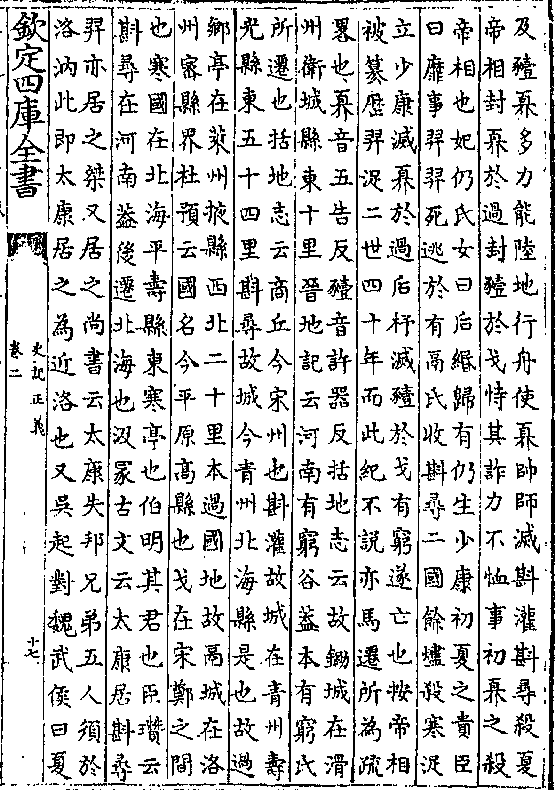 及殪奡多力能陸地行舟使奡帥師滅斟灌斟尋殺夏
帝相封奡於過封殪於戈恃其詐力不恤民事初奡之殺
帝相也妃仍氏女曰后緡歸有仍生少康初夏之貴臣
曰靡事羿羿死逃於有鬲氏收斟尋二國餘燼殺寒浞
立少康滅奡於過后杼滅殪於戈有窮遂亡也按帝相
被篡歷羿浞二世四十年而此紀不說亦馬遷所為疏
畧也奡音五告反殪音許器反括地志云故鋤城在滑
州衛城縣東十里晉地記云河南有窮谷葢本有窮氏
所遷也括地志云商丘今宋州也斟灌故城在青州壽
光縣東五十四里斟尋故城今青州北海縣是也故過
鄉亭在萊州掖縣西北二十里本過國地故鬲城在洛
州密縣界杜預云國名今平原鬲縣也戈在宋鄭之間
也寒國在北海平壽縣東寒亭也伯明其君也臣瓚云
斟尋在河南葢後遷北海也汲冢古文云太康居斟尋
羿亦居之桀又居之尚書云太康失邦兄弟五人須於
洛汭此即太康居之為近洛也又吳起對魏武侯曰夏
欽定四庫全書
史記正義
卷二
十七